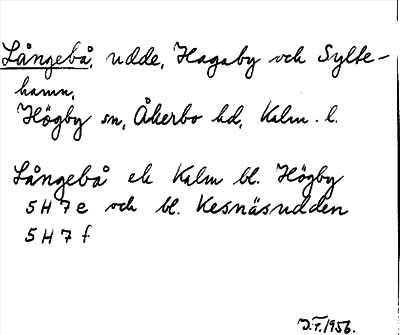 Långebå, udde, Hagaby och Sylte-
hamn,
Högby sn, Åkerbo hd, Kalm. l.
Långebå ek Kalm bl. Högby
5H7e och bl. Kesnäsudden
5H7f
J.T. 1956.